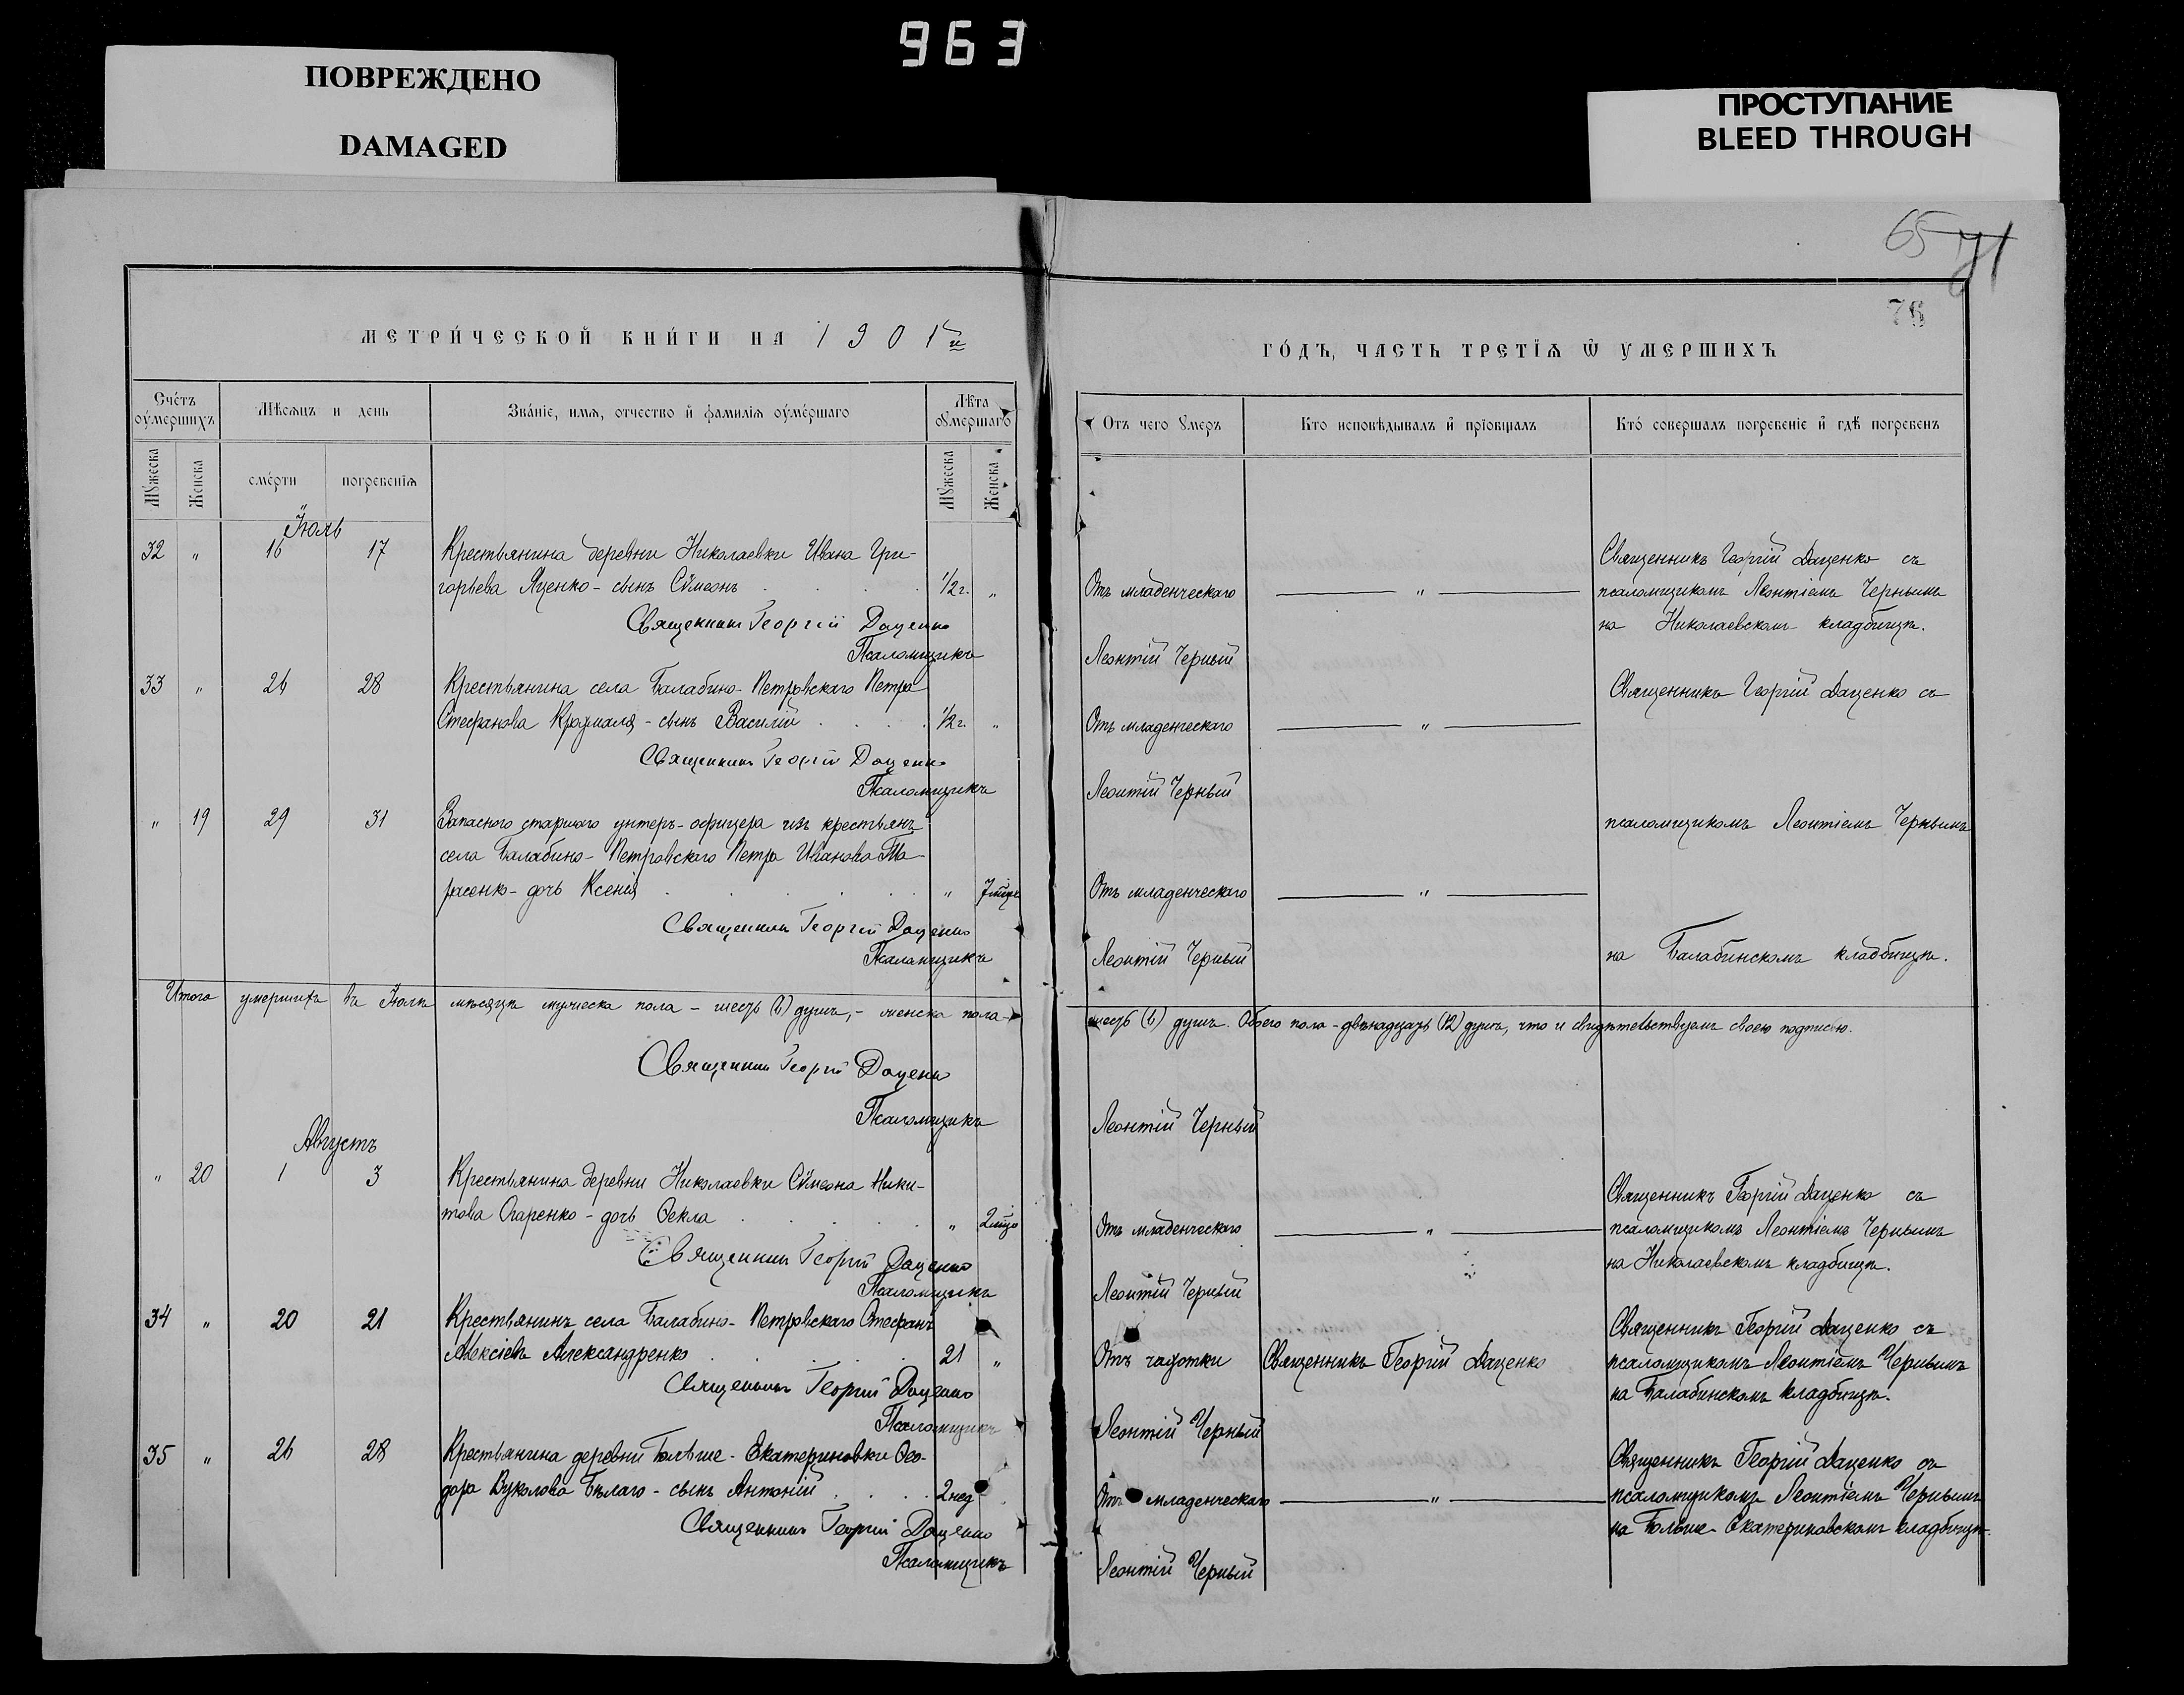 963
ПОВРЕЖДЕНО
DAMAGED
ПРОСТУПАНИЕ
BLEED THROUGH
65 71
76
МЕТРИЧЕСКОЙ КНИГИ НА 1901й
Счетъ оумершихъ
Мѣсяцъ и день
Званіе, имя, отчество и фамилія оумершаго
Лѣта оумершаго
Мужеска
Женска
смерти
погребенія
Мужеска
Женска
Іюль
32 " 16 17 Крестьянина деревни Николаевки Ивана Гри-
горьева Яценко - сынъ Сѵмеонъ 1/2 г. "
Священникъ Георгій Даценко
Псаломщикъ
33 " 26 28 Крестьянина села Балабино-Петровскаго Петра
Стефанова Крохмаля - сынъ Василій 1/2 г. "
Священникъ Георгій Даценко
Псаломщикъ
" 19 29 31 Запаснаго старшаго унтеръ-офицера изъ крестьянъ
села Балабино-Петровскаго Петра Иванова Та-
расенко - дочь Ксенія " 7 мѣс
Священникъ Георгій Даценко
Псаломщикъ
Итого умершихъ въ Іюлѣ мѣсяцѣ мужеска пола - шесть (6) душъ, - женска пола -
Священникъ Георгій Даценко
Псаломщикъ
Августъ
" 20 1 3 Крестьянина деревни Николаевки Сѵмеона Ники-
това - дочь Ѳекла " 2 мѣс
Священникъ Георгій Даценко
Псаломщикъ
34 " 20 21 Крестьянинъ села Балабино-Петровскаго Стефанъ
Алексіевъ Александренко 21 "
Священникъ Георгій Даценко
Псаломщикъ
35 " 26 28 Крестьянина деревни Больше-Екатериновки Ѳео-
дора Вуколова Бѣлаго - сынъ Антоній 2 нед
Священникъ Георгій Даценко
Псаломщикъ
ГОДЪ, ЧАСТЬ ТРЕТІЯ Ѿ УМЕРШИХЪ
Отъ чего умеръ
Кто исповѣдывалъ и пріобщалъ
Кто совершалъ погребеніе и гдѣ погребенъ
Священникъ Георгій Даценко съ
Отъ младенческаго " псаломщикомъ Леонтіемъ Чернымъ
на Николаевскомъ кладбищѣ.
Леонтій Черный
Священникъ Георгій Даценко съ
Отъ младенческаго "
Леонтій Черный
псаломщикомъ Леонтіемъ Чернымъ
Отъ младенческаго "
Леонтій Черный на Балабинскомъ кладбищѣ.
шесть (6) душъ. Обоего пола - двѣнадцать (12) душъ, что и свидѣтельствуемъ своею подписью.
Леонтій Черный
Священникъ Георгій Даценко съ
Отъ младенческаго " псаломщикомъ Леонтіемъ Чернымъ
на Николаевскомъ кладбищѣ.
Леонтій Черный
Священникъ Георгій Даценко съ
Отъ чахотки Священникъ Георгій Даценко псаломщикомъ Леонтіемъ Чернымъ
на Балабинскомъ кладбищѣ.
Леонтій Черный
Священникъ Георгій Даценко съ
Отъ младенческаго " псаломщикомъ Леонтіемъ Чернымъ
на Больше-Екатериновскомъ кладбищѣ.
Леонтій Черный